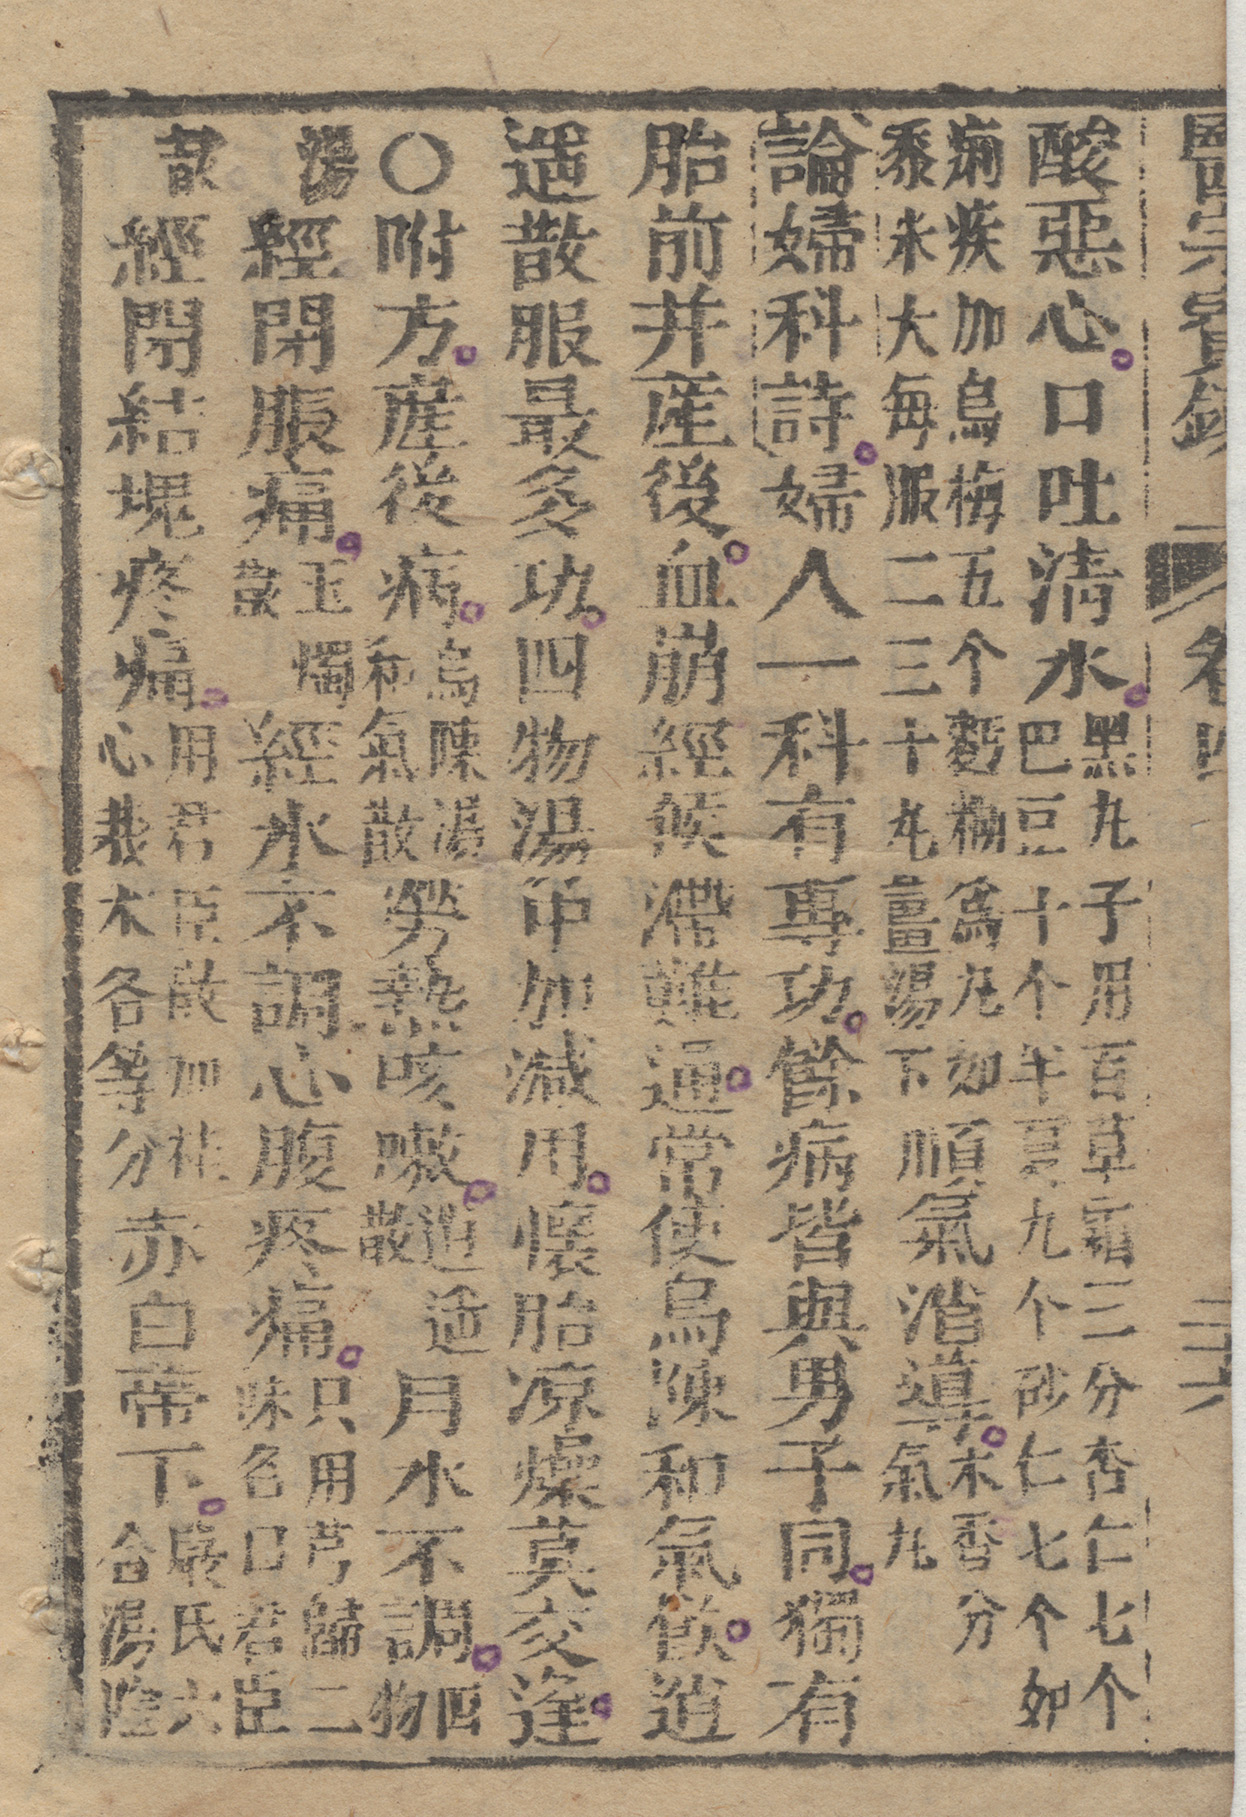 醫宗寶鑑 卷四 三十六
酸惡心口吐清水黑丸子用百草霜三分杏仁七个巴豆十个半夏九个砂仁七个如
痢疾加烏梅五个麪糊爲丸如黍米大每服二三十丸薑湯下順氣消導木香分氣丸
論婦科詩婦人一科有專功餘病皆與男子同獨有
胎前并產後血崩經候滯難通常使烏陳和氣飲逍
遥散服最多功四物湯中加減用懷胎凉燥莫交逢
〇附方產後病烏陳湯和氣散勞熱咳嗽逍遥散月水不調四物
湯經閉脹痛玉燭散經水不調心腹疼痛只用芎歸二味名曰君臣
散經閉結塊疼痛用君臣散加桂心莪朮各等分赤白蒂下嚴氏六合湯陰